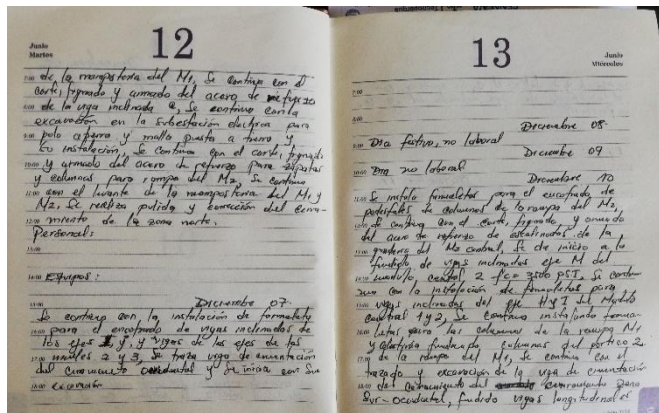 Junio
Martes
12
7:00 de la mamposteria del M1, Se continua con el
corte, figurado y armado del acero de refuerzo
8:00 de la viga inclinada e, Se continua con la
excavación en la subestación electrica para
9:00 polo a tierra y malla puesta a tierra y
su instalación, Se continua con el corte, figurado
10:00 y armado del acero de refuerzo para zapatas
y columnas para rampa del M2, Se continua
11:00 con el levante de la mamposteria del M1 y
M2, Se realiza pulida y corrección del cerra-
12:00 miento de la zona norte.
Personal:
13:00
14:00 Equipos:
15:00 Diciembre 07
Se continua con la instalación de formaleta
16:00 para el encofrado de vigas inclinadas de
los ejes y, y vigas de los ejes de los
17:00 niveles 2 y 3, Se traza viga de cimentación
del cerramiento occidental y se inicia con su
18:00 excavación
13
Junio
Miércoles
7:00
Diciembre 08
8:00 Dia festivo, no laboral
Diciembre 09
10:00 Dia no laboral
Diciembre 10
11:00 Se instala formaletas para el encofrado de
pedestales de columnas de la rampa del M2,
12:00 Se continua con el corte, figurado y armado
del acero de refuerzo de escalinatas de la
13:00 del M2 central, Se da inicio a la
fundida de vigas inclinadas eje M del
14:00 modulo central 2 f'c= 3500 PSI, Se contin-
ua con la instalación de formaletas para
15:00 vigas inclinadas del eje H y I del Modulo
central 1 y 2, Se continua instalando forma-
16:00 letas para las columnas de la rampa M1
y columnas del portico 2
17:00 de la rampa del M1, Se continua con el
trazado y excavación de la viga de cimentación
18:00 del cerramiento zona
Sur-Occidental, fundido vigas longitudinales